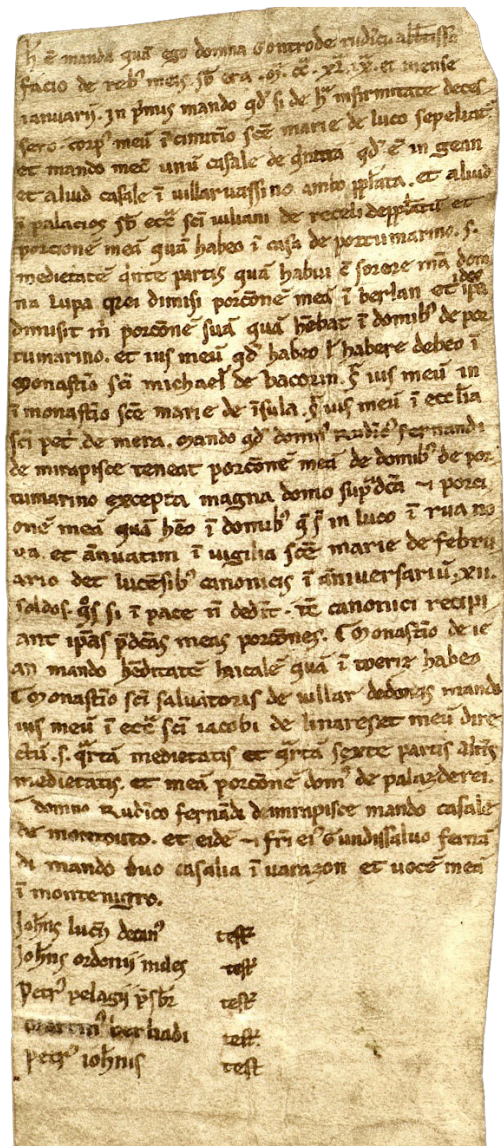 h̃ ẽ manda quã ego domna Gontrode rudici abb̃tissa
facio de reb⁹ meis. sb̃ era .M. cc̃. xl. ix. et mense
ianuarii. In p̃mis mando qd̃ si de hac infirmitate deces
sero. corp⁹ meũ ĩ cimitio sc̃e marie de luco sepeliat̃
et mando mec̃ unũ casale de quinta qd̃ ẽ in gean
et aliud casale ĩ uillaruassino ambo pp̃lata. et aliud
ĩ palacios sb̃ ecc̃ sc̃i iuliani de receli depp̃latũ et
porcionẽ meã quã habeo ĩ casa de portumarino. s.
medietatẽ q̃nte partis quã habui c̃ sorore mea dom
na lupa q̃ ei dimisi porc̃onẽ meã ĩ berlan et ip̃a ideo
dimisit m̃ porc̃onẽ suã quã hẽbat ĩ domib⁹ de por
tumarino. et ius meũ qd̃ habeo l̃ habere debeo ĩ
Monast̃io sc̃i michael̃ de bacorin. ⁊ ius meũ in
ĩ monast̃io sc̃e marie de ĩsula. ⁊ ius meũ ĩ eccl̃ia
sc̃i pet̃ de mera. Mando qd̃ domn⁹ Rudic⁹ fernandi
de mirapisce teneat porc̃onẽ meã de domib⁹ de por
tumarino excepta magna domo sup̃dc̃a ⁊ porci
onẽ meã quã hẽo ĩ domib⁹ q̃ s̃ in luco ĩ rua no
ua. et ãnuatim ĩ vigilia sc̃e marie de febru
ario det lucẽsib⁹ canonicis ĩ ãniuersariũ. xii.
soldos. q̃s si ĩ pace ñ dedit̃. tc̃ canonici recipi
ant ip̃as p̃dc̃as meas porc̃ones. Monast̃io de ie
an mando hẽditatẽ laicalẽ quã ĩ toerir habeo
Monast̃io sc̃i saluatoris de uillar dedonas mando
ius meũ ĩ ecc̃ sc̃i iacobi de linares et meũ dire
ctũ. s. q̃rtã medietatis et q̃rtã sexte partis alt̃i⁹
medietatis. et meã porc̃onẽ dom⁹ de palarderei.
domno Rudico fernãdi de mirapisce mando casale
de montouto. et eidẽ ⁊ fr̃i ei⁹ Gundissaluo fernã
di mando duo casalia ĩ uarazon et uocẽ meã
ĩ montenigro.
Ioh̃ns luc̃n decan⁹ test̃
Ioh̃ns ordonii miles test̃
Petr⁹ pelagii p̃sbr̃ test̃
Martin⁹ uerhadi test̃
Petr⁹ ioh̃nis test̃